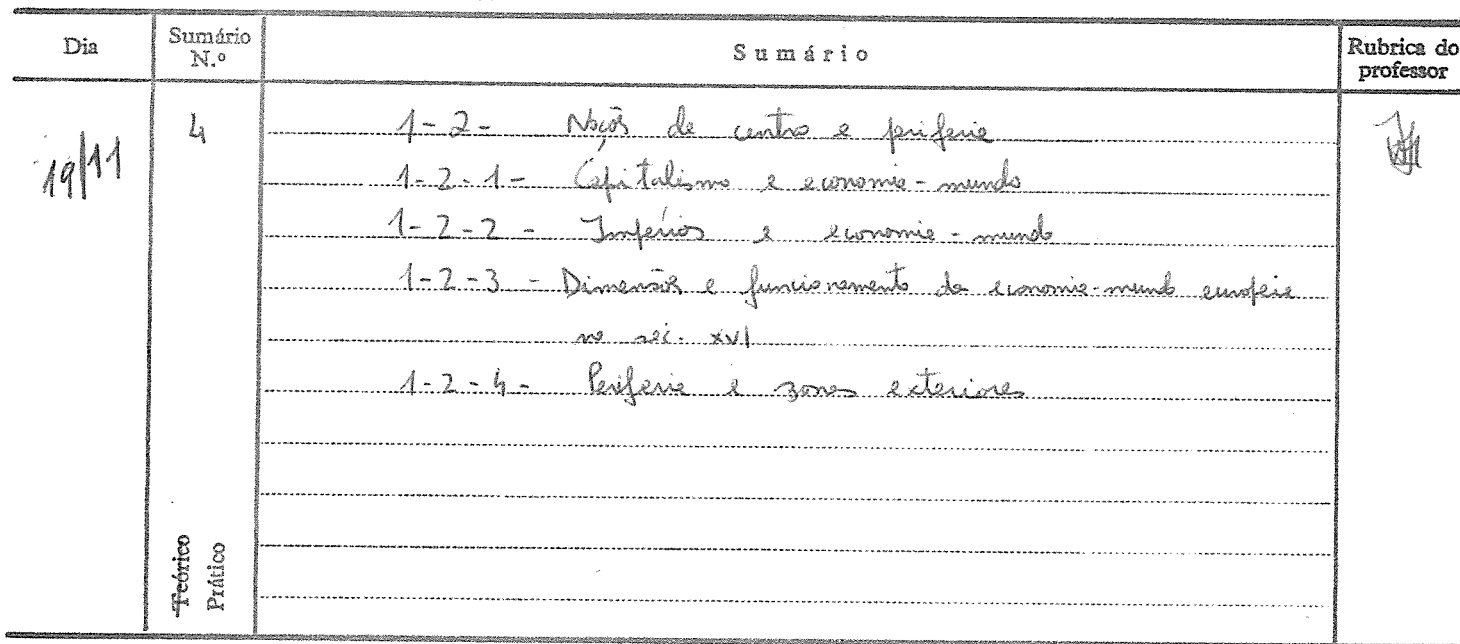 Dia
Sumário N.º
Sumário
Rubrica do professor
19/11
4
1-2- Noções de centro e periferia
1-2-1- Capitalismo e economia-mundo
1-2-2- Impérios e economia-mundo
1-2-3- Dimensões e funcionamento da economia-mundo europeia
no séc. XVI
1-2-4- Periferia e zonas exteriores
Teórico
Prático